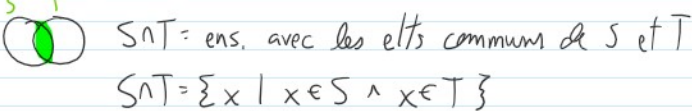 S∩T = ens. avec les elts communs de S et T
S∩T = {x | x ∈ S ∧ x ∈ T}